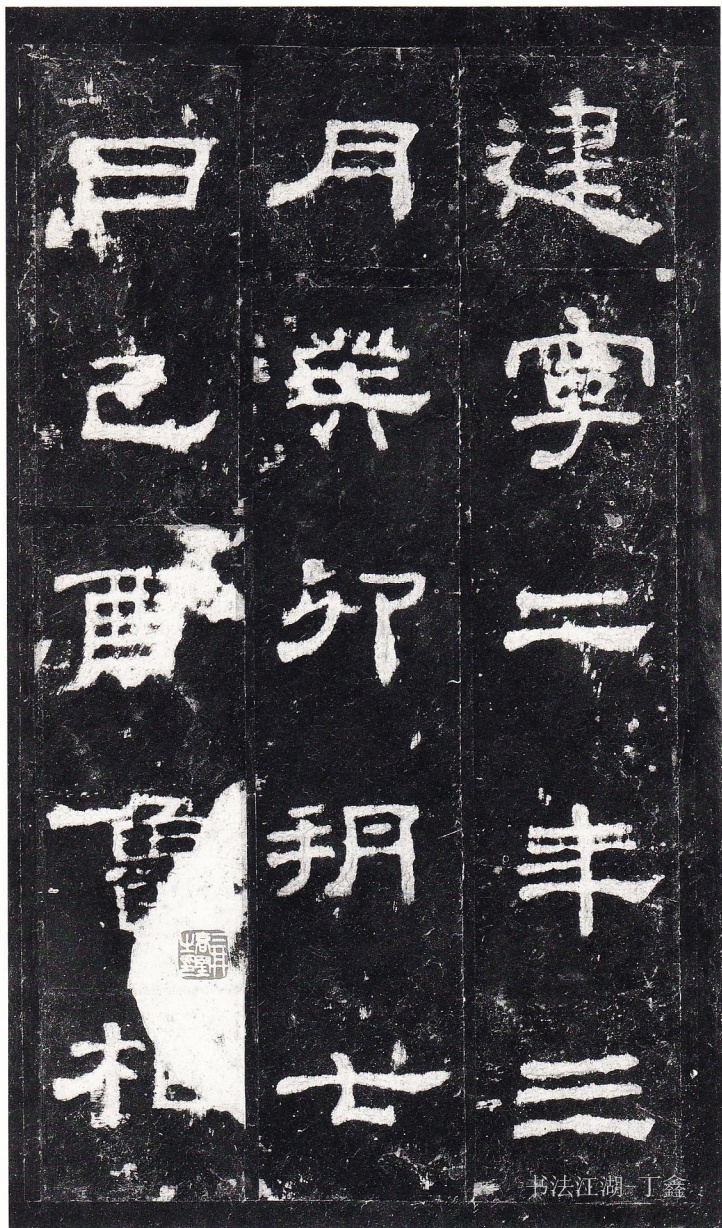 建寧二年三
月癸卯朔七
日己酉魯相
书法江湖-丁鑫